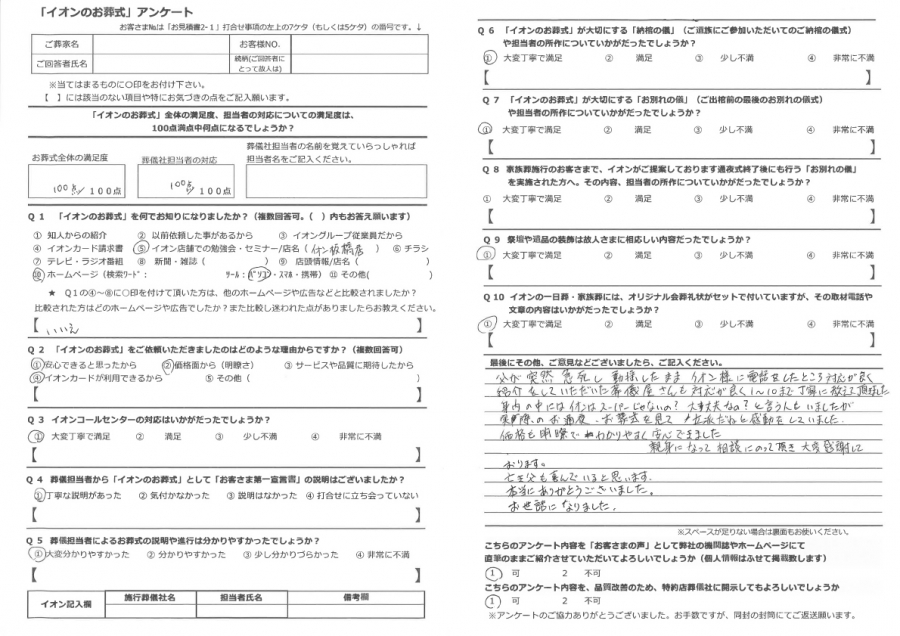 「イオンのお葬式」アンケート
お客さま№は「お見積書2-1」打合せ事項の左上の7ケタ（もしくは5ケタ）の番号です。↓
ご葬家名
お客様NO.
ご回答者氏名
続柄(ご回答者にとって故人は)
※当てはまるものに〇印をお付け下さい。
【　】には該当のない項目や特にお気づきの点をご記入願います。
「イオンのお葬式」全体の満足度、担当者の対応についての満足度は、
100点満点中何点になるでしょうか？
お葬式全体の満足度
葬儀社担当者の対応
葬儀社担当者の名前を覚えていらっしゃれば
担当者名をご記入ください。
100点／100点
100点／100点
Q 1 「イオンのお葬式」を何でお知りになりましたか？（複数回答可。（　）内もお答え願います）
① 知人からの紹介　② 以前依頼した事があるから　③ イオングループ従業員だから
④ イオンカード請求書　⑤ イオン店舗での勉強会・セミナー/店名（イオン板橋店　）　⑥ チラシ
⑦ テレビ・ラジオ番組　⑧ 新聞・雑誌（　）　⑨ 店頭情報/店名（　）
⑩ ホームページ（検索ﾜｰﾄﾞ：　ﾂｰﾙ：パソコン・スマホ・携帯）　⑪ その他(　)
★ Q１の④～⑩に〇印を付けて頂いた方は、他のホームページや広告などと比較されましたか？
比較された方はどのホームページや広告でしたか？また比較し迷われた点がありましたらお教えください。
【 いいえ 】
Q 2 「イオンのお葬式」をご依頼いただきましたのはどのような理由からですか？（複数回答可）
①安心できると思ったから　②価格面から（明瞭さ）　③ サービスや品質に期待したから
④イオンカードが利用できるから　⑤ その他（　）
【　】
Q 3 イオンコールセンターの対応はいかがだったでしょうか？
① 大変丁寧で満足　② 満足　③ 少し不満　④ 非常に不満
【　】
Q 4 葬儀担当者から「イオンのお葬式」として「お客さま第一宣言書」の説明はございましたか？
①丁寧な説明があった　② 気付かなかった　③ 説明はなかった　④ 打合せに立ち会っていない
【　】
Q 5 葬儀担当者によるお葬式の説明や進行は分かりやすかったでしょうか？
①大変分かりやすかった　② 分かりやすかった　③ 少し分かりづらかった　④ 非常に不満
【　】
イオン記入欄　施行葬儀社名　担当者氏名　備考欄
Q 6 「イオンのお葬式」が大切にする「納棺の儀」（ご遺族にご参加いただいてのご納棺の儀式）
や担当者の所作についていかがだったでしょうか？
① 大変丁寧で満足　② 満足　③ 少し不満　④ 非常に不満
【　】
Q 7 「イオンのお葬式」が大切にする「お別れの儀」（ご出棺前の最後のお別れの儀式）
や担当者の所作についていかがだったでしょうか？
① 大変丁寧で満足　② 満足　③ 少し不満　④ 非常に不満
【　】
Q 8 家族葬施行のお客さまで、イオンがご提案しております通夜式終了後にも行う「お別れの儀」
を実施された方へ。その内容、担当者の所作についていかがだったでしょうか？
① 大変丁寧で満足　② 満足　③ 少し不満　④ 非常に不満
【　】
Q 9 祭壇や遺品の装飾は故人さまに相応しい内容だったでしょうか？
① 大変丁寧で満足　② 満足　③ 少し不満　④ 非常に不満
【　】
Q 10 イオンの一日葬・家族葬には、オリジナル会葬礼状がセットで付いていますが、その取材電話や
文章の内容はいかがだったでしょうか？
① 大変丁寧で満足　② 満足　③ 少し不満　④ 非常に不満
【　】
最後にその他、ご意見などございましたら、ご記入ください。
父が突然急死し動揺したままイオン様に電話をしたところ対応が良く
紹介をしていただいた葬儀屋さんも対応が良く1～10まで丁寧に教えて頂きました
身内の中にはイオンはスーパーじゃないの？大丈夫なの？と言う人もいましたが
実際のお通夜、お葬式を見て立派だねと感動をしていました。
価格も明瞭でわかりやすく安心できました
親身になって相談にのって頂き大変感謝して
おります。
亡き父も喜んでいると思います。
本当にありがとうございました。
お世話になりました。
※スペースが足りない場合は裏面もお使いください。
こちらのアンケート内容を「お客さまの声」として弊社の機関誌やホームページにて
直筆のままご紹介させていただいてよろしいでしょうか（個人情報はふせて掲載致します）
1　可　2　不可
こちらのアンケート内容を、品質改善のため、特約店葬儀社に開示してもよろしいでしょうか
1　可　2　不可
※アンケートのご協力ありがとうございました。お手数ですが、同封の封筒にてご返送願います。